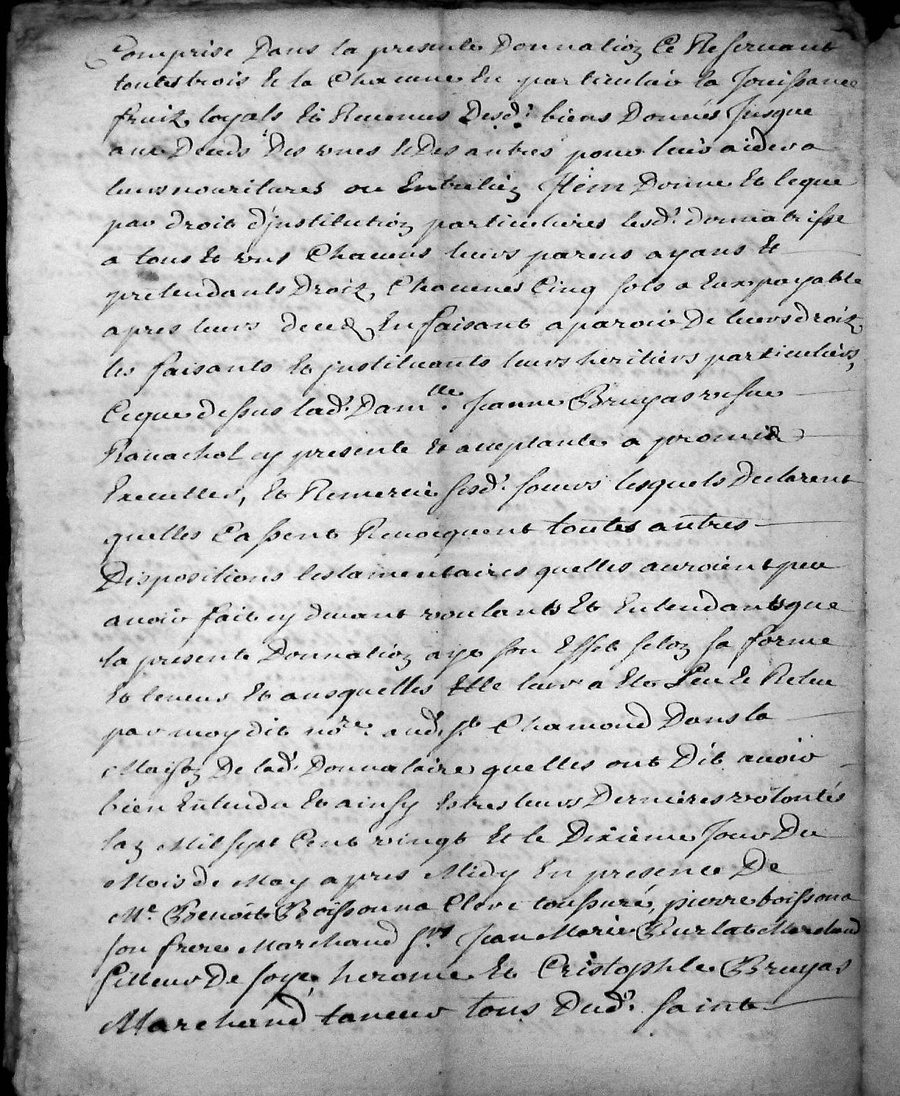 Comprise Dans la presente Donnation Ce Reservant
toutes trois Et la Chacune En particulair la Jouissance
fruitz loyals Et Revenus Desd: biens Donnés Jusque
aux Deceds Des unes Et Des autres pour leur aider a
leurs nouritures ou Entretien Item Donne Et legue
par droit d'Institution particulieres lesd: donnatrisse
a tous Et uns Chacuns leurs parens ayans Et
pretendants Droitz Chacunes Cinq sols a Eux payable
apres leurs deced En faisant aparoir De leurs droitz
les faisants Et Jnstituants leurs heritiers particuliers,
Ceque dessus lad: Dam.lle Jeanne Bruyas vefve
Ravachol cy presente Et acceptante a promis
Executter, Et Remercie sesd: sœurs lesquels Declarent
quelles Cassent Revocquent toutes autres
Dispositions testamentaires quelles auroient peu
avoir fait cy devant voulants Et Entendants que
la presente Donnation aye son Effet selon sa forme
Et teneur Et ausquelles Elle leur a Ete Leu Et Releu
par moy dit no.re aud: St Chamond Dans la
Maison De lad: Donnataire quelles ont Dit avoir
bien Entendu Et ainsy Estres leurs Dernieres volontés
lan Mil sept Cent vingt Et le Dixieme Jour Du
Mois de May apres Midy En presence De
Mr. Benoit Boissonna Clerc tonsuré, pierre boissona
son frere Marchand Jean Marie Burlat Marchand
filleur De soye, herome Et Cristophle Bruyas
Marchand taneur tous Dud: saint